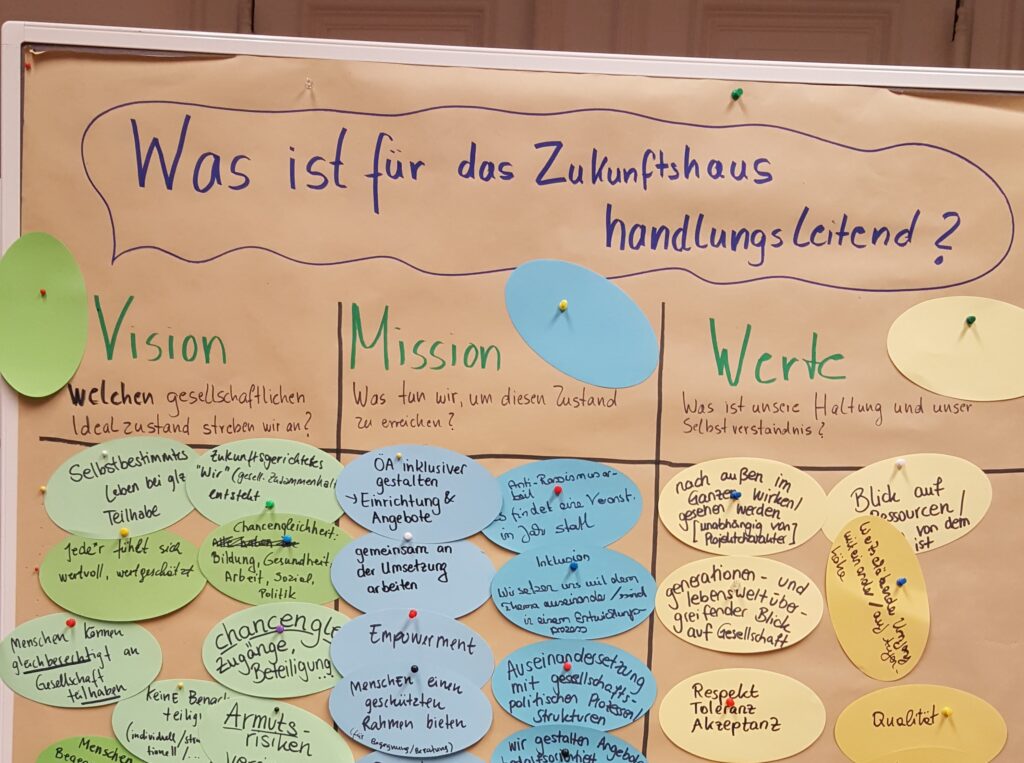 Was ist für das Zukunftshaus
handlungsleitend?
Vision
Welchen gesellschaftlichen
Idealzustand streben wir an?
Selbstbestimmtes
Leben bei glz
Teilhabe
Zukunftsgerichtetes
"Wir" (gesell. Zusammenhalt
entsteht
Jede*r fühlt sich
wertvoll, wertgeschätzt
Chancengleichheit:
Bildung, Gesundheit,
Arbeit, Sozial,
Politik
Menschen können
gleichberechtigt an
Gesellschaft
teilhaben
chancengle
Zugänge,
Beteiligung...
KEINE Benach
teilig
(individuell/stru
tionell/...
Armuts-
risiken
Menschen
Mission
Was tun wir, um diesen Zustand
zu erreichen?
ÖA inklusiver
gestalten
→ Einrichtung &
Angebote
gemeinsam an
der Umsetzung
arbeiten
EMPOWERMENT
MENSCHEN EINEN
geschützten
Rahmen bieten
(für Begegnung/Beratung)
Anti-Rassismusar-
beit
es findet eine Veranst.
im Jahr statt
Inklusion
Wir setzen uns mit dem
Thema auseinander / sind
in einem Entwicklungs-
prozess
Auseinandersetzung
mit gesellschafts-
politischen Prozessen/
Strukturen
wir gestalten Angebote
Werte
Was ist unsere Haltung und unser
Selbstverständnis?
nach außen im
Ganzen wirken/
gesehen werden
[unabhängig von]
Projektcharakter]
Blick auf
Ressourcen/
von dem
ist
generationen- und
lebensweltüber-
greifender Blick
auf Gesellschaft
Wertschätzender Umgang
miteinander / auf Augen-
höhe
Respekt
Toleranz
Akzeptanz
Qualität